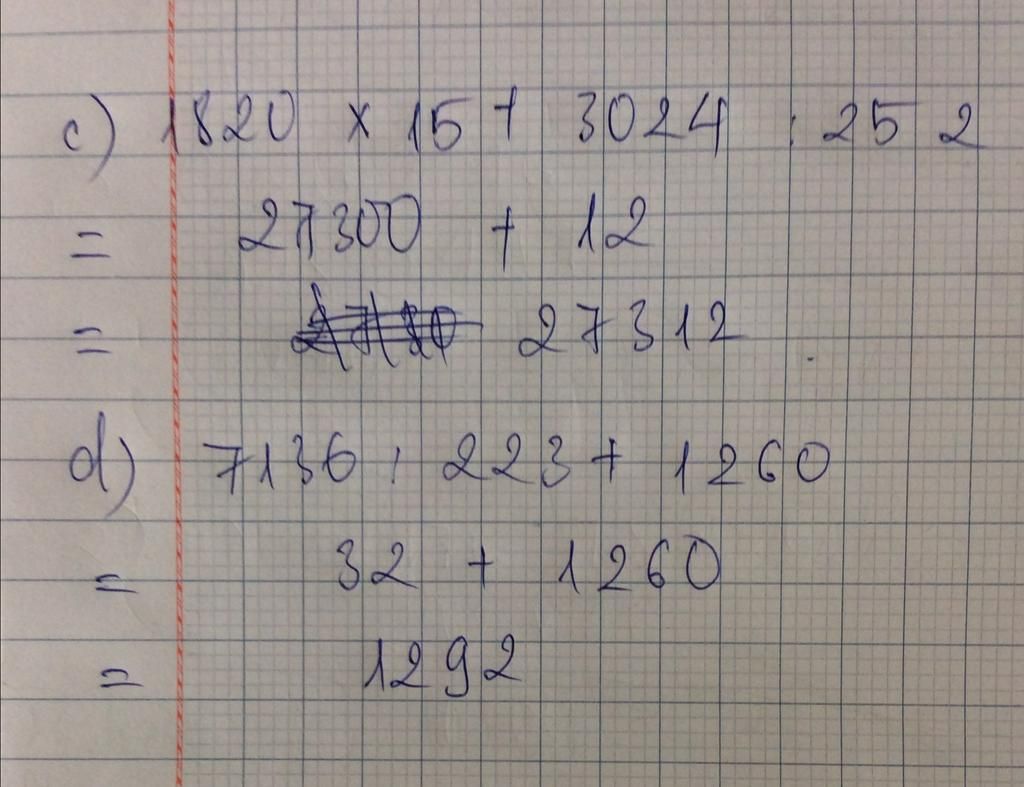 c) 1820 x 15 + 3024 : 252
= 27300 + 12
= 27312
d) 7136 : 223 + 1260
= 32 + 1260
= 1292